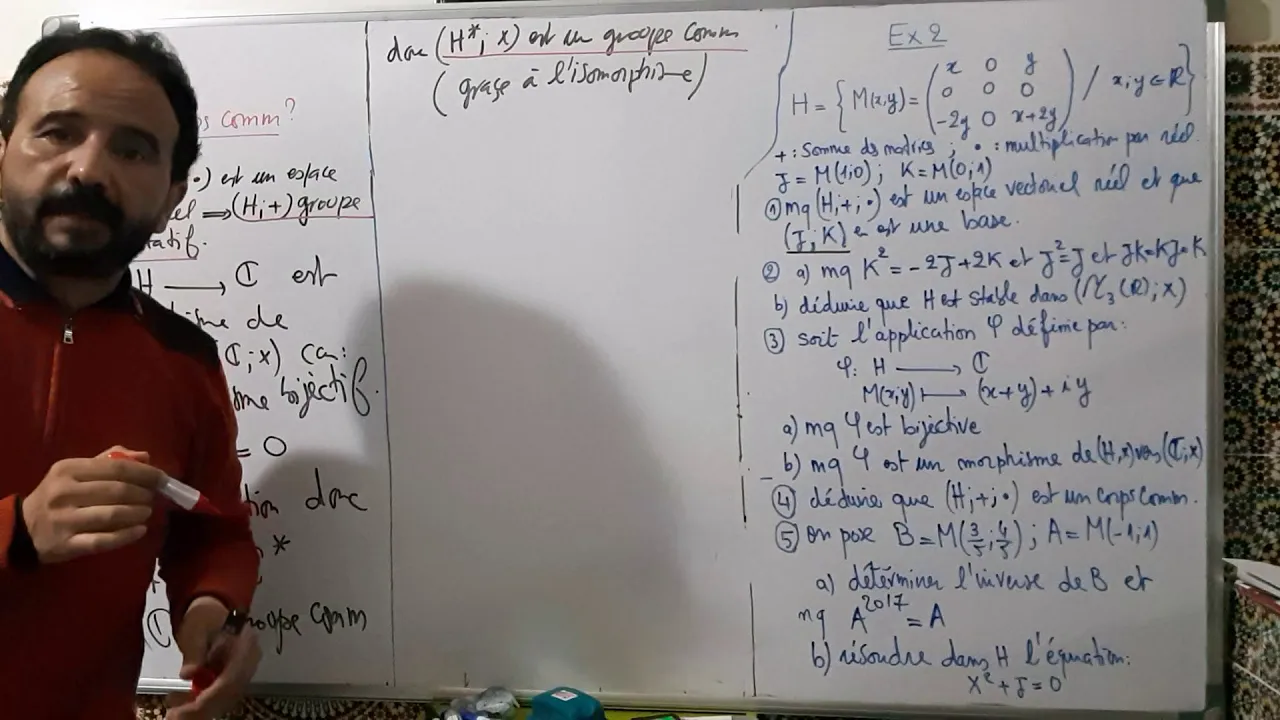 ps comm?
) est un espace
el ⟹ (H;+) groupe
tatif.
H ⟶ ℂ est
sme de
(ℂ;×) car:
sme bijectif.
= 0
tion donc
*
groupe comm
donc (H*; ×) est un groupe comm
(grase à l'isomorphisme)
Ex 2
H = { M(x;y) = ( x 0 y
0 0 0
-2y 0 x+2y ) / x;y ∈ ℝ }
+ : Somme ds matrices ; • : multiplication par réel.
J = M(1;0) ; K = M(0;1)
① mq (H;+;•) est un espace vectoriel réel et que
(J;K) en est une base.
② a) mq K² = -2J+2K et J²=J et JK=KJ=K
b) déduire que H est stable dans (M₃(ℝ);×)
③ soit l'application φ définie par:
φ: H ⟶ ℂ
M(x;y) ⟼ (x+y)+iy
a) mq φ est bijective
b) mq φ est un morphisme de (H,×) vers (ℂ;×)
④ déduire que (H;+;•) est un corps comm.
⑤ on pose B = M(3/5;4/5) ; A = M(-1;1)
a) détérminer l'inverse de B et
mq A²⁰¹⁷ = A
b) résoudre dans H l'équation:
X² + J = 0